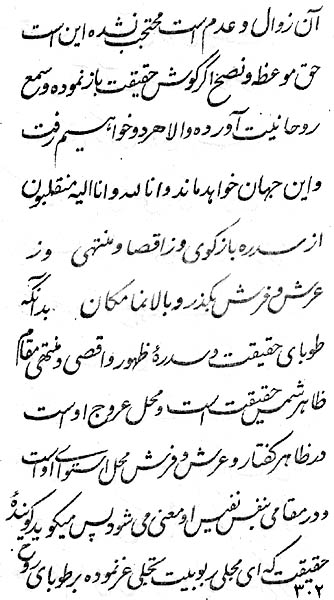 آن زوال و عدم است محتجب نشده این است
حق موعظه و نصح اگر گوش حقیقت باز نموده و سمع
روحانیت آورده والا هر دو خواهیم رفت
و این جهان خواهد ماند و انا لله و انا الیه منقلبون
از سدره بازگوی وز اقصا و منتهی وز
عرش و فرش بگذر و بالا نما مکان بدانکه
طوبای حقیقت و سدرهٔ ظهور و اقصی و منتهی مقام
ظاهر شمس حقیقت است و محل عروج او است
در ظاهر گفتار و عرش و فرش محل استوای او است
و در مقامی بنفس نفیس او معنی می شود پس میگوید گویندهٔ
حقیقت که ای مجلی ربوبیت تجلی عز نموده بر طوبای روح
٣٠٢